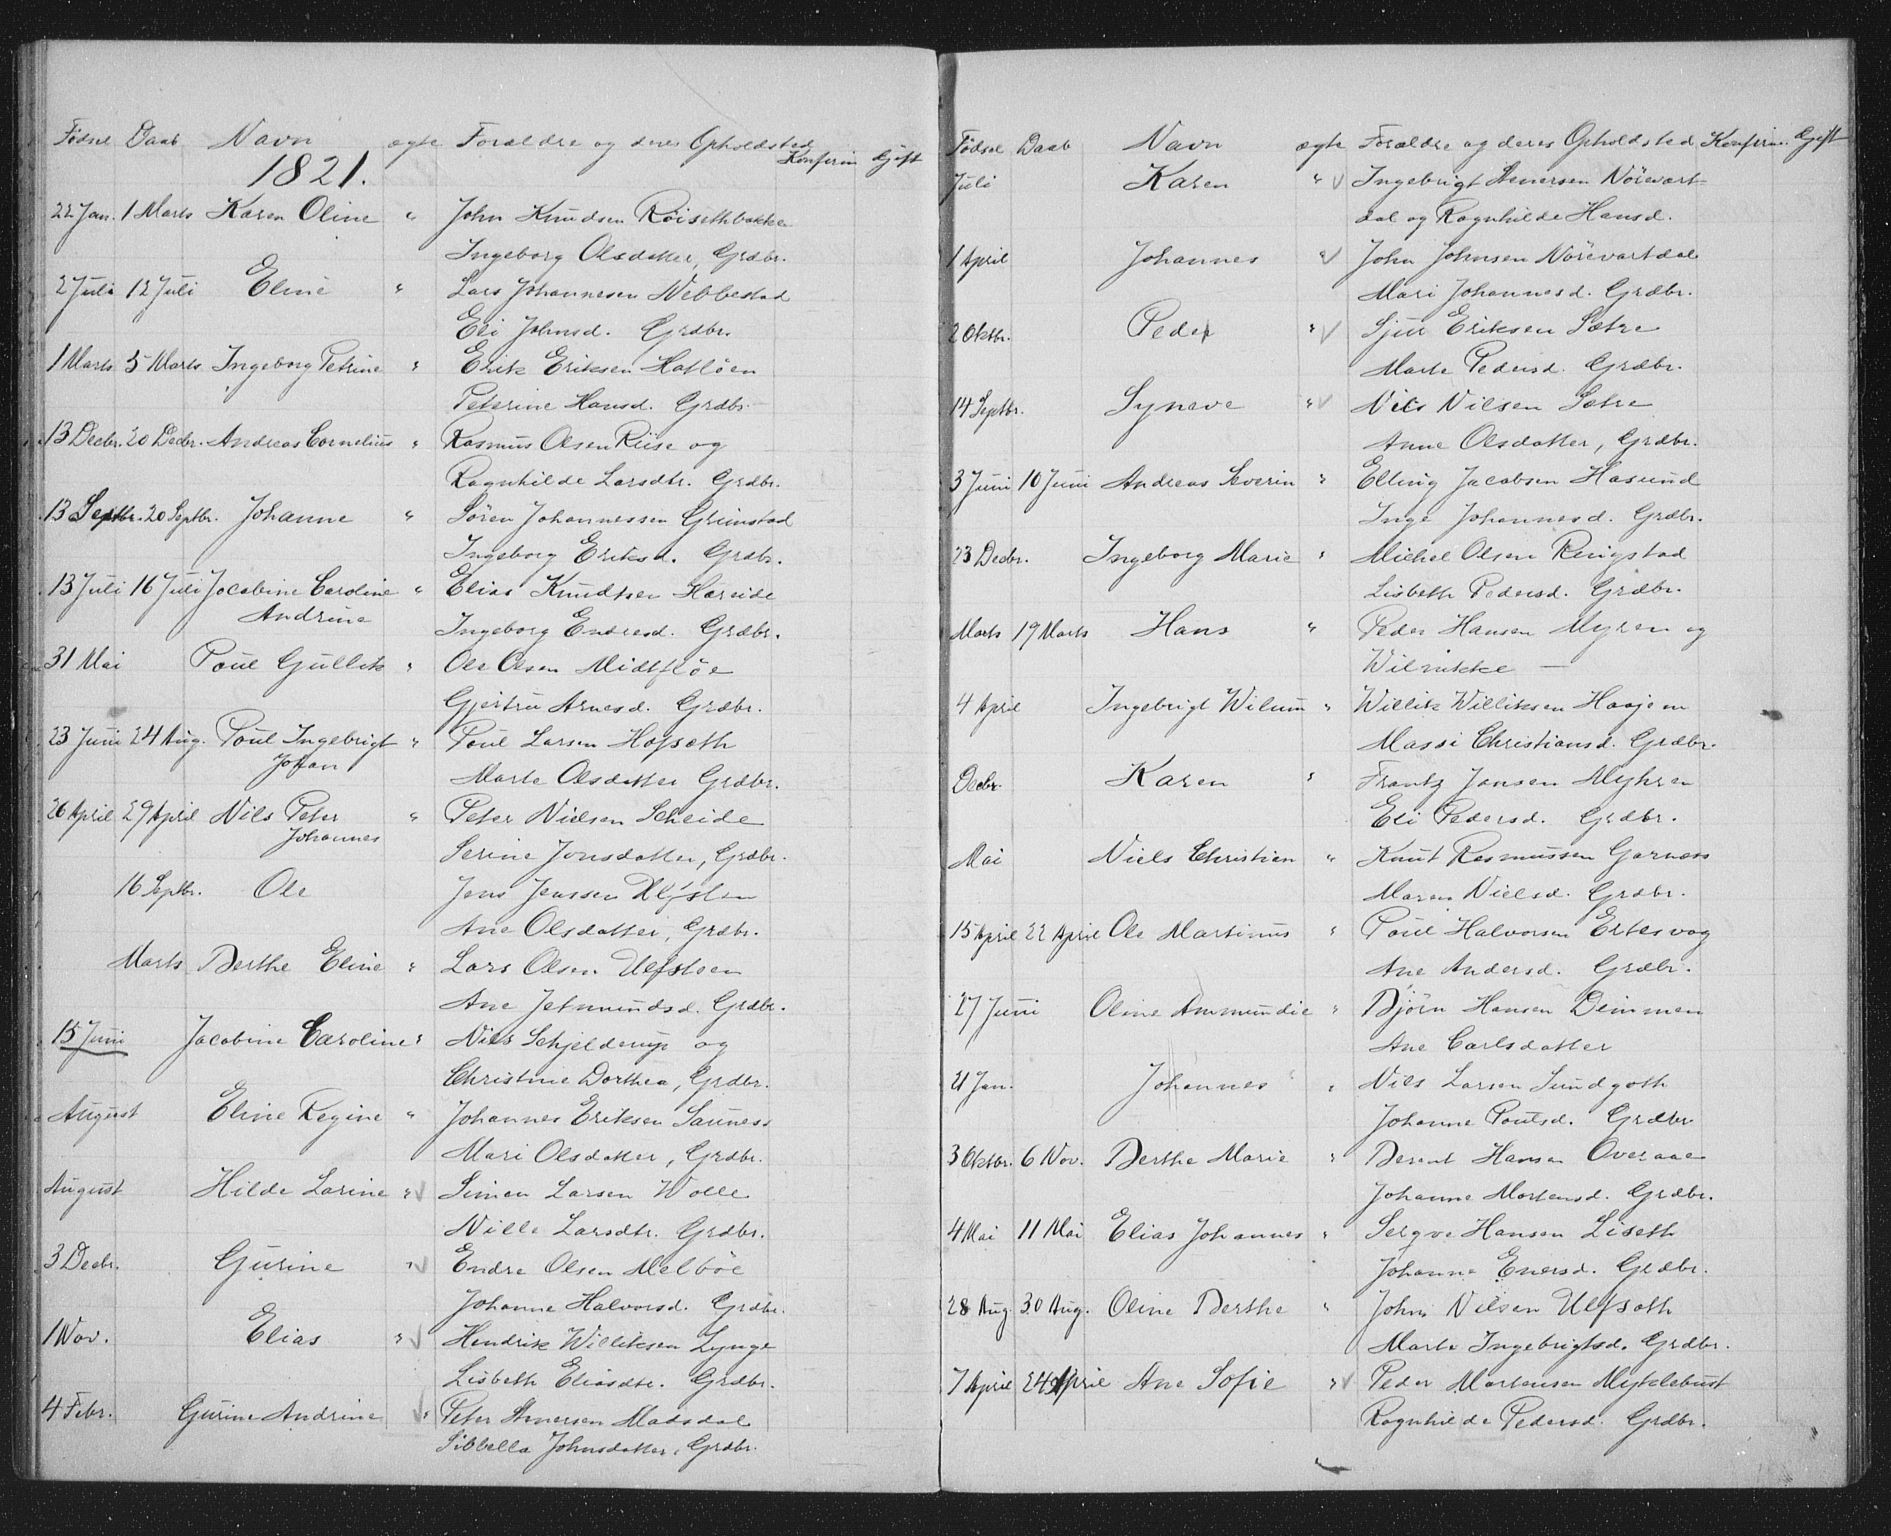 Fødsel Daab Navn ægte Forældre og deres Opholdsted Konfirm Gift
1821.
22 Jan. 1 Marts Karen Oline " John Knudsen Röisethbakken
Ingeborg Olsdatter, Grdbr.
2 Juli 12 Juli Eline " Lars Johannesen Nebbestad
Eli Johnsd. Grdbr.
1 Marts 5 Marts Ingeborg Petrine " Erik Eriksen Hatlöen
Peterine Hansd. Grdbr.
13 Decbr. 20 Decbr. Andreas Cornelius " Rasmus Olsen Riise og
Ragnhilde Larsdtr. Grdbr.
13 Septbr. 20 Septbr. Johanne " Sören Johannessen Grimstad
Ingeborg Eriksd. Grdbr.
13 Juli 16 Juli Jacobine Caroline " Elias Knudtsen Hareide
Andrine
Ingeborg Endresd. Grdbr.
31 Mai Poul Gullik " Ole Olsen Midtflöe
Gjertru Arnesd. Grdbr.
23 Juni 24 Aug. Poul Ingebrigt " Poul Larsen Hofseth
Johan
Marte Olsdatter Grdbr.
26 April 29 April Nils Peter " Peter Nielsen Scheide
Johannes
Serine Jonsdatter, Grdbr.
16 Septbr. Ole Jens Jenssen Ulfsten
Ane Olsdatter, Grdbr.
Marts Berthe Eline " Lars Olsen Ulfstoen
Ane Jetmundsd. Grdbr.
15 Juni Jacobine Caroline " Nils Schjelderup og
Christine Dorthea, Grdbr.
August Eline Regine " Johannes Eriksen Sauness
Mari Olsdatter, Grdbr.
August Hilde Larine " Simen Larsen Wolle
Nille Larsdtr. Grdbr.
3 Decbr. Gurine " Endre Olsen Melböe
Johanne Halvorsd. Grdbr.
1 Nov. Elias " Hendrik Williksen Lynge
Lisbeth Eliasdtr. Grdbr.
4 Febr. Gurine Andrine " Peter Amersen Madsdal
Sibbella Johnsdatter, Grdbr.
Fødsel Daab Navn ægte Forældre og deres Opholdsted Konfirm. Gift
Juli Karen " Ingebrigt Nörevart-
dal og Ragnhilde Hansd.
1 April Johannes " John Johnsen Nörevartdal
Mari Johannesd. Grdbr.
2 Oktbr. Peder " Sjur Eriksen Sætre
Marte Pedersd. Grdbr.
14 Septbr. Syneve " Nils Nilsen Sætre
Anne Olsdatter, Grdbr.
3 Juni 10 Juni Andreas Severin " Elling Jacobsen Hasund
Inge Johannesd. Grdbr.
23 Decbr. Ingeborg Marie " Michel Olsen Ringstad
Lisbeth Pedersd. Grdbr.
Marts 19 Marts Hans " Peder Hansen Myren og
Wilnikke —
4 April Ingebrigt Wilum " Willik Williksen Haajem
Massi Christiansd. Grdbr.
Decbr. Karen " Frantz Jansen Myhren
Eli Pedersd. Grdbr.
Mai Niels Christian " Knut Rasmussen Garness
Maren Nielsd. Grdbr.
15 April 22 April Ole Martinus " Poul Halvorsen Ertesvag
Ane Andersd. Grdbr.
27 Juni Oline Ammundie " Björn Hansen Dimmen
Ane Carlsdatter
21 Jan. Johannes " Nils Larsen Sundgoth
Johanne Poulsd. Grdbr.
3 Oktbr. 6 Nov. Berthe Marie " Berent Hansen Overaae
Johanne Mortensd. Grdbr.
4 Mai 11 Mai Elias Johannes " Sergve Hansen Liseth
Johanne Enersd. Grdbr.
28 Aug. 30 Aug. Oline Berthe " John Nilsen Ulfseth
Marte Ingebrigtsd. Grdbr.
7 April 24 April Ane Sofie " Peder Mortensen Myklebust
Ragnhilde Pedersd. Grdbr.